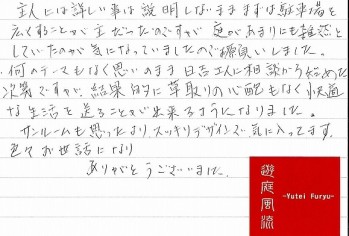 主人には詳しい事は説明しないままずは駐車場を
広くすることが主だったのですが庭があまりにも雑然と
していたのが気になっていましたのでお願いしました。
何のテーマもなく思いのまま日吉さんに相談から始めた
次第ですが、結果的に草取りの心配もなく快適
な生活を送ることが出来るようになりました。
サンルームも思ったよりスッキリデザインで気に入ってます。
色々お世話になり
ありがとうございました。
遊庭風流
-Yutei Furyu-